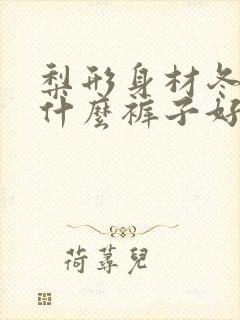 梨形身材冬
什麼裤子好
荷蕁兒